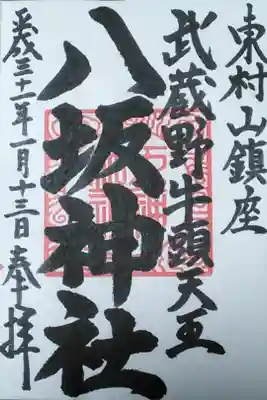 東村山鎮座
武蔵野牛頭天王
八坂神社
平成三十一年一月十三日奉拝